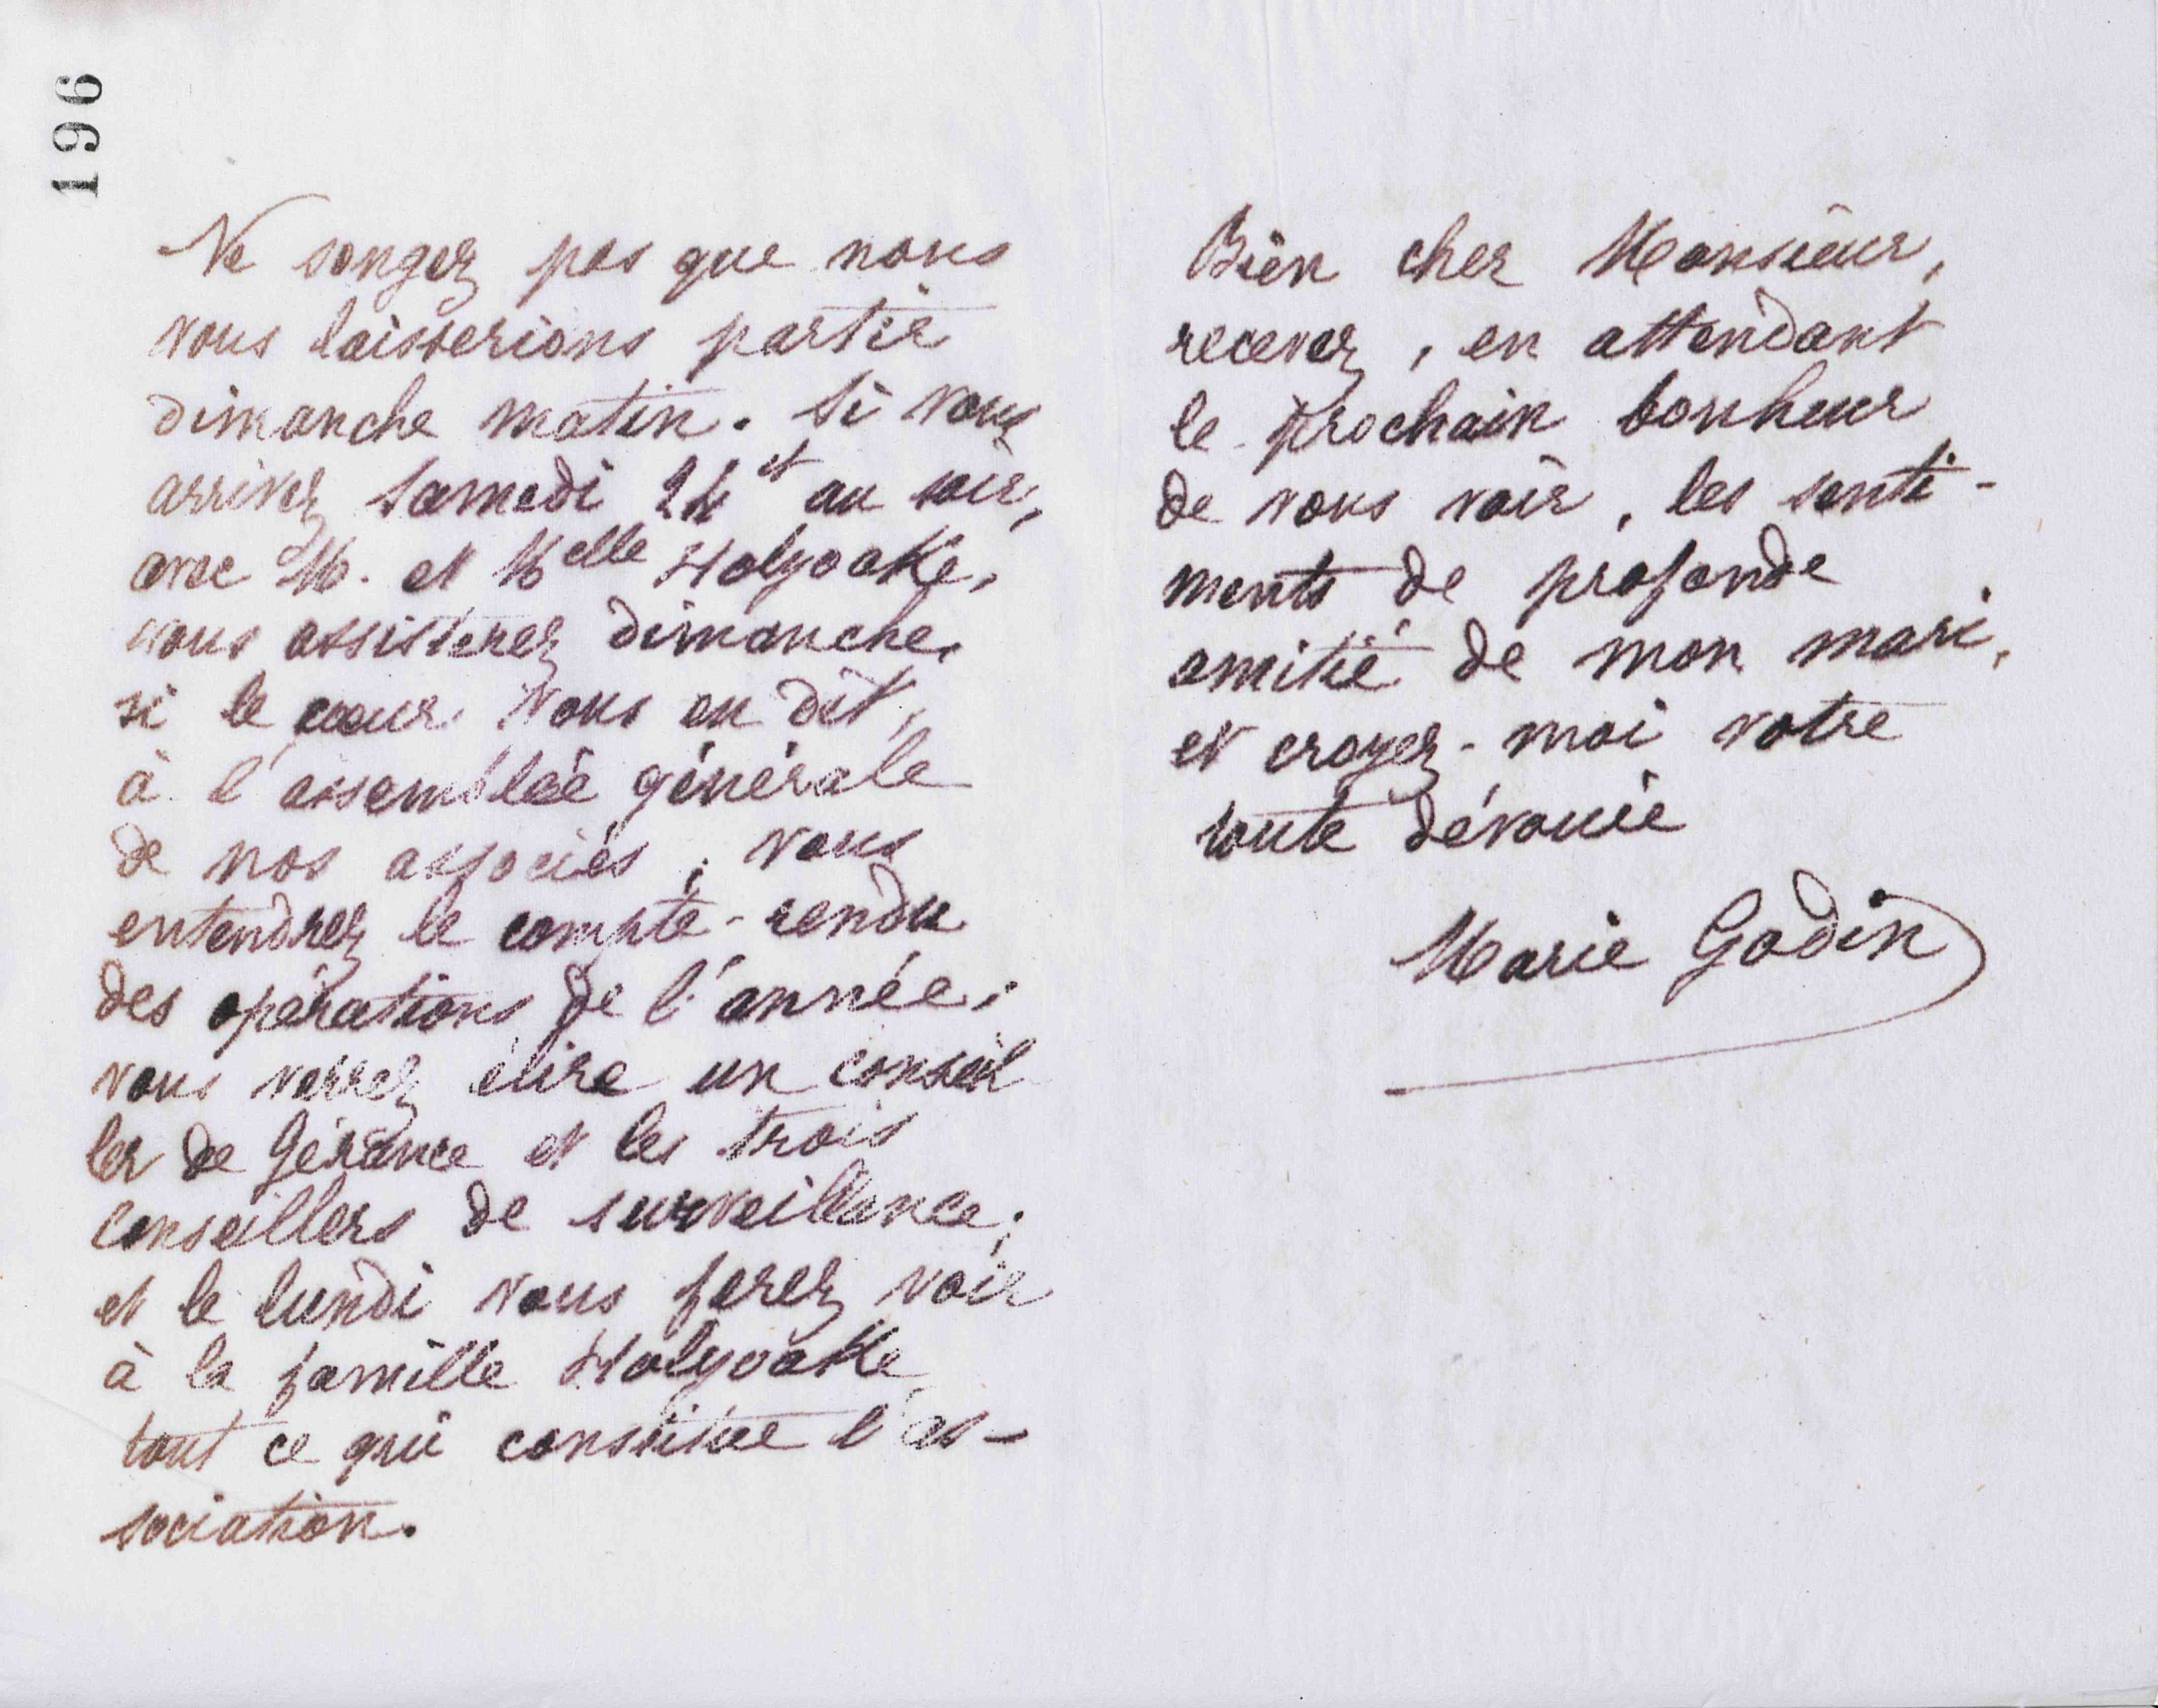 196
Ne songez pas que nous
vous laisserions partir
dimanche matin. Si vous
arrivez samedi au soir,
avec M. et Melle Holyoake,
vous assisterez dimanche,
si le cœur vous en dit,
à l'assemblée générale
de nos associés ; vous
entendrez le compte-rendu
des opérations de l'année ;
vous verrez élire un conseil
ler de Gérance et les trois
conseillers de surveillance ;
et le lundi vous ferez voir
à la famille Holyoake
tout ce qui constitue l'as-
sociation.
Bien cher Monsieur,
recevez, en attendant
le prochain bonheur
de vous voir, les senti-
ments de profonde
amitié de mon mari,
et croyez-moi votre
toute dévouée
Marie Godin